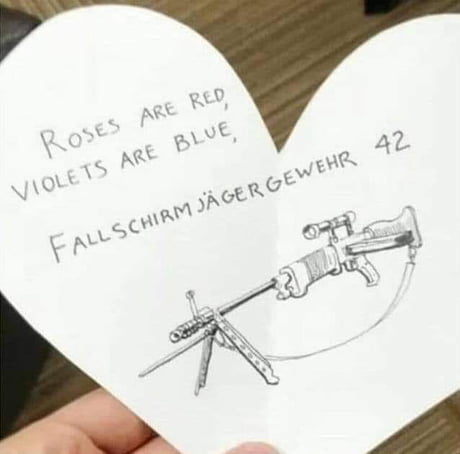 ROSES ARE RED,
VIOLETS ARE BLUE,
FALLSCHIRMJÄGERGEWEHR 42